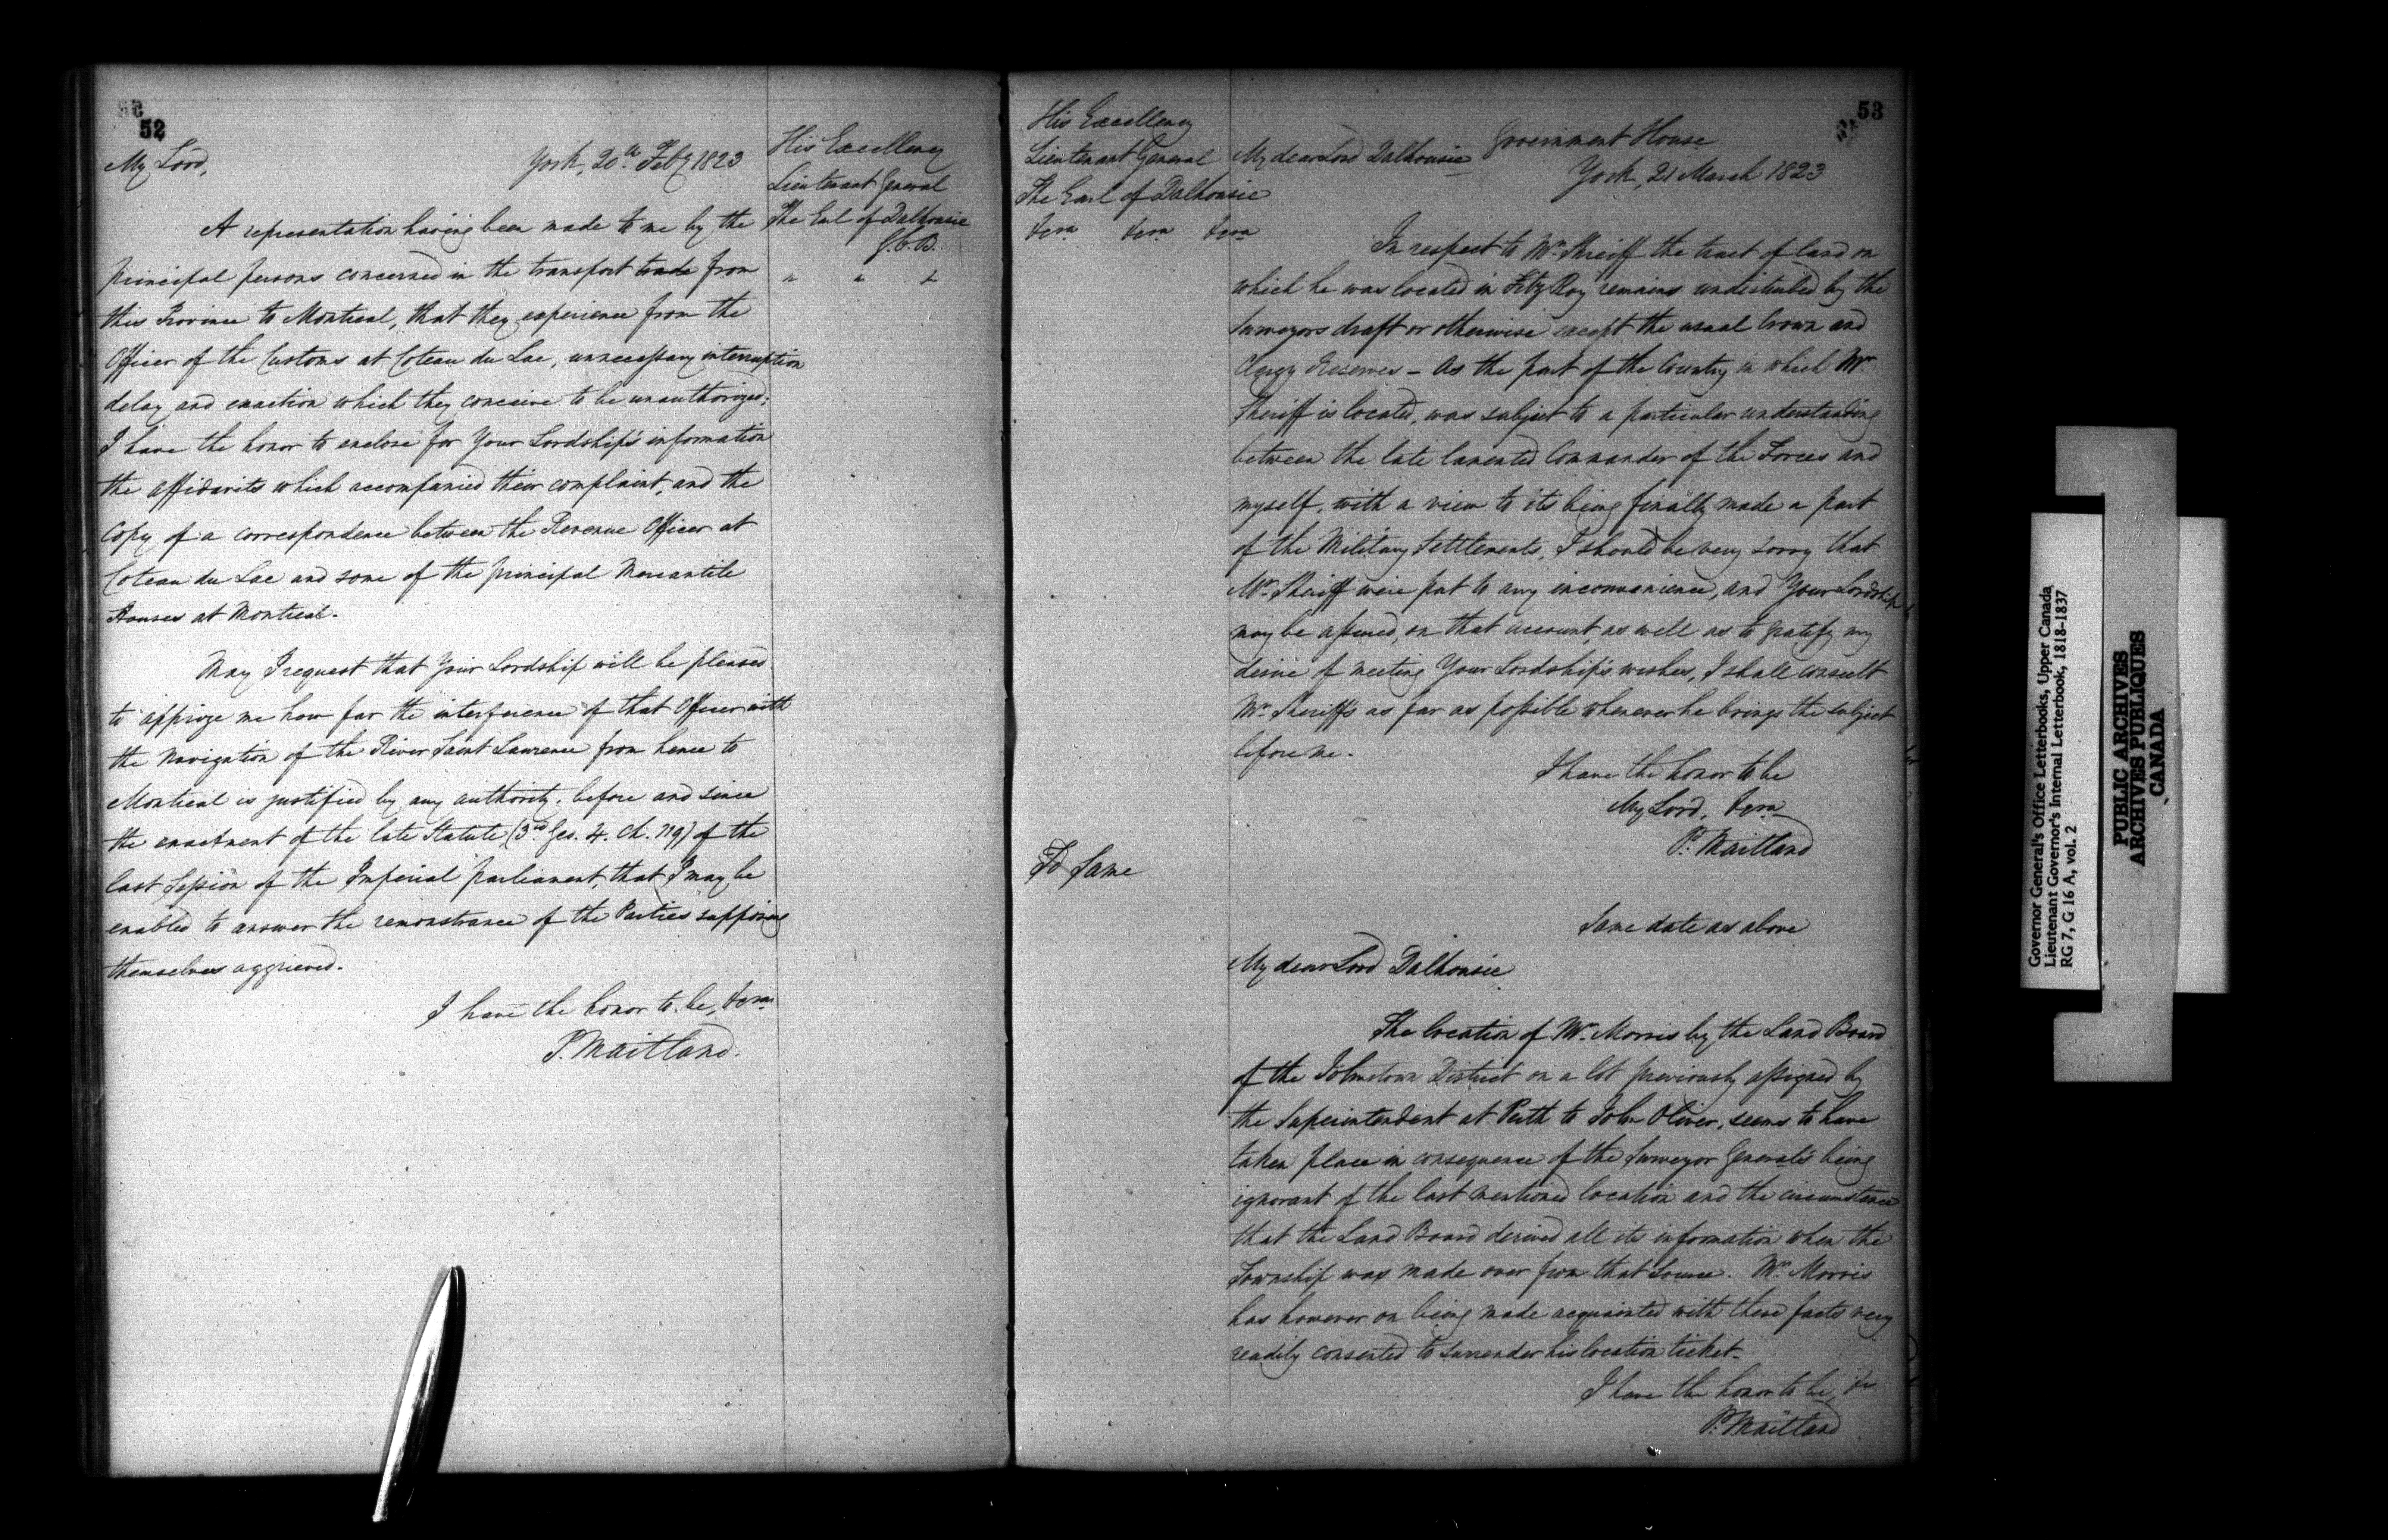 52
My Lord,
York, 20th Feby 1823
His Excellency
Lieutenant General
The Earl of Dalhousie
G.C.B.
A representation having been made to me by the
principal persons concerned in the transport trade from
this Province to Montreal, that they experience from the
Officer of the Customs at Coteau du Lac, unnecessary interruption
delay and exaction which they conceive to be unauthorized;
I have the honor to enclose for Your Lordship's information
the affidavits which accompanied their complaint, and the
Copy of a correspondence between the Revenue Officer at
Coteau du Lac and some of the principal Mercantile
Houses at Montreal.
May I request that Your Lordship will be pleased
to apprize me how far the interference of that Officer with
the Navigation of the River Saint Laurence from hence to
Montreal is justified by any authority, before and since
the enactment of the late Statute (3rd Geo. 4. Ch. 119) of the
last Session of the Imperial parliament, that I may be
enabled to answer the remonstrance of the Parties supposing
themselves aggrieved.
I have the honor to be, &ca
P. Maitland.
53
His Excellency
Lieutenant General
The Earl of Dalhousie
&ca &ca &ca
Government House
York, 21 March 1823
My dear Lord Dalhousie
In respect to Mr Sheriff the tract of land on
which he was located in Fitz Roy remains undisturbed by the
Surveyors draft or otherwise except the usual Crown and
Clergy Reserves – As the part of the Country in which Mr
Sheriff is located, was subject to a particular understanding
between the late lamented Commander of the Forces and
myself, with a view to its being finally made a part
of the Military Settlements, I should be very sorry that
Mr Sheriff were put to any inconvenience, and Your Lordship
may be assured, on that account, as well as to gratify my
desire of meeting Your Lordship's wishes, I shall consult
Mr Sheriff's as far as possible whenever he brings the subject
before me.
I have the honor to be
My Lord, &ca
P. Maitland
To Same
Same date as above
My dear Lord Dalhousie
The location of Mr Morris by the Land Board
of the Johnstown District on a lot previously assigned by
the Superintendent at Perth to John Oliver, seems to have
taken place in consequence of the Surveyor General's being
ignorant of the last mentioned location and the circumstance
that the Land Board derived all its information when the
Township was made over from that source. Mr Morris
has however on being made acquainted with these facts very
readily consented to surrender his location ticket.
I have the honor to be, &c
P. Maitland
Governor General's Office Letterbooks, Upper Canada
Lieutenant Governor's Internal Letterbook, 1818-1837
RG 7, G 16 A, vol. 2
PUBLIC ARCHIVES
ARCHIVES PUBLIQUES
CANADA